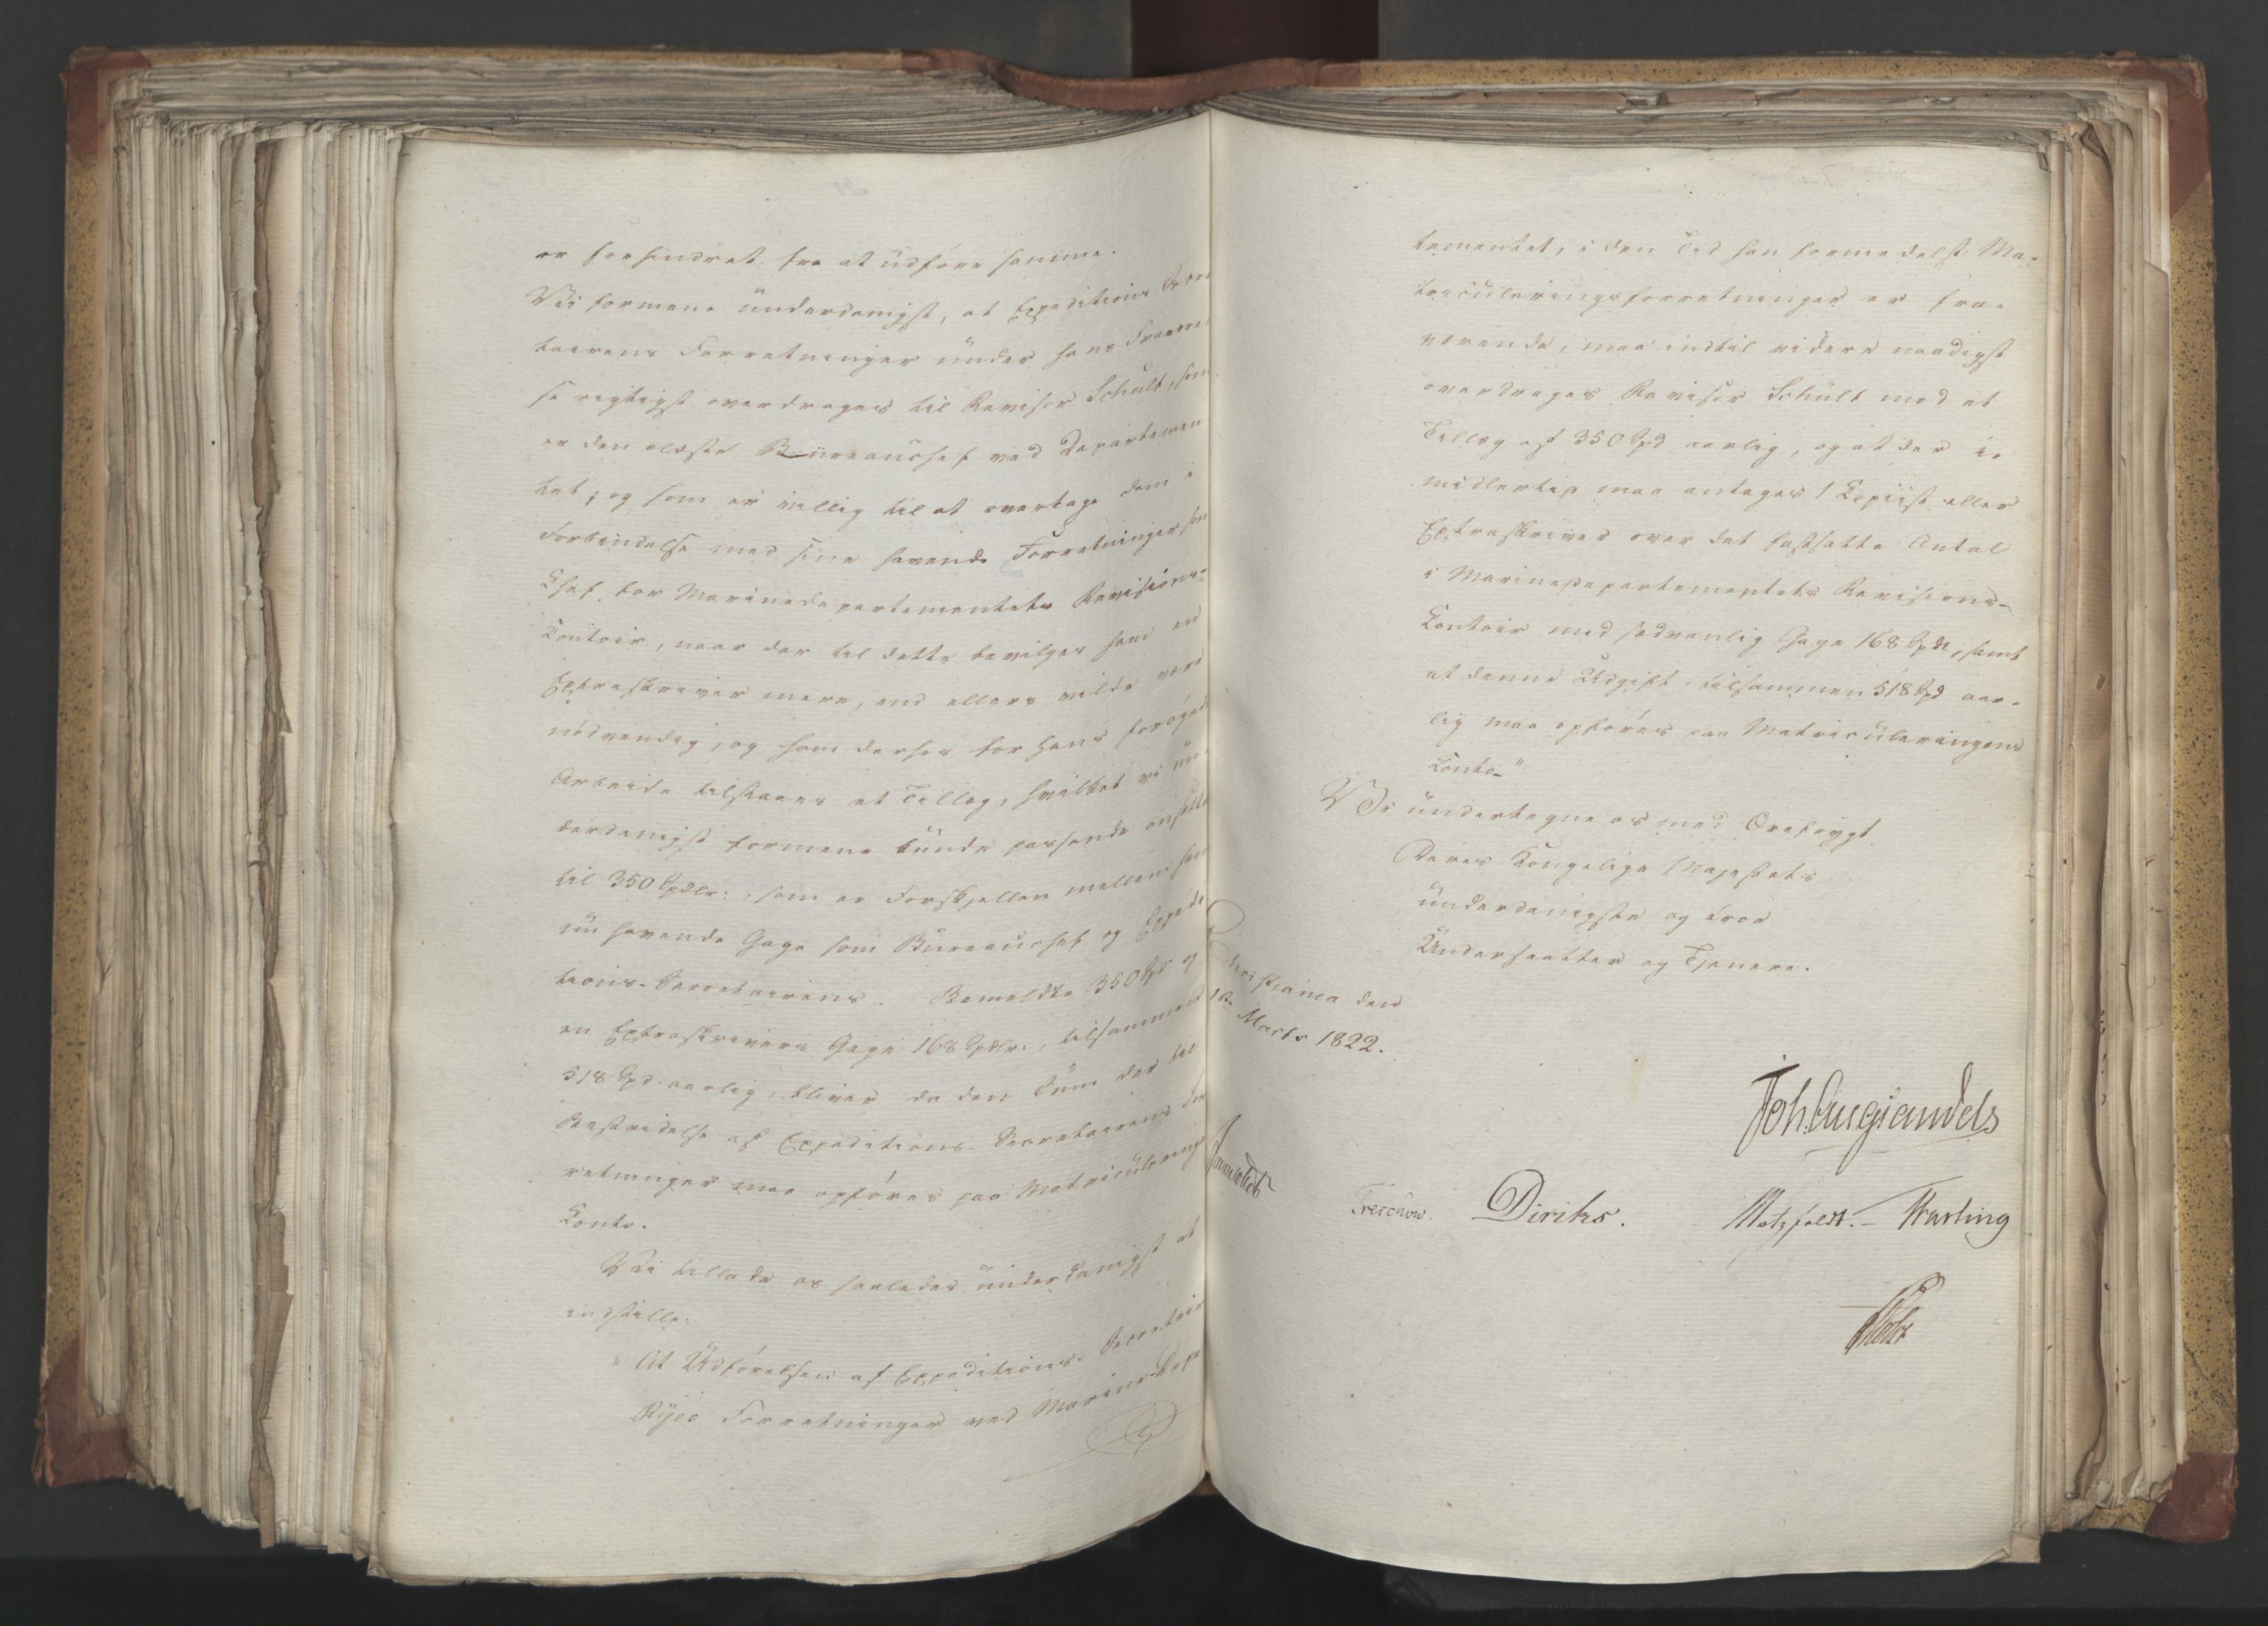 er forhindret fra at udføre samme.
Vi formene underdanigst, at Expeditions Secre
tairens Forretninger under hans Fravæ
se rigtigst overdrages til Revisor Schult, som
er den ældste Bureauchef ved Departemen
tet, og som er villig til at overtage dem i
Forbindelse med sine havende Forretninger som
Chef for Marinedepartementets Revisions-
Contoir, naar der til dette bevilges ham en
Extraskriver mere, end ellers vilde være
nødvendig, og ham derhos for hans forøgede
Arbeide tilstaaes et Tillæg, hvilket vi un-
derdanigst formene kunde passende ansætte
til 350 Spdlr:, som er Forskjellen mellem hans
nu havende Gage som Bureauchef og Expedi
tions-Secretairens. Bemeldte 350 Spd og
en Extraskrivers Gage 168 Spdlr:, tilsammen
518 Spd. aarlig, bliver da den Sum der til
Bestridelse af Expeditions-Secretairens For
retninger maa opføres paa Matriculerings
Conto.
Vi tillade os saaledes underdanigst at
indstille:
" At Udførelsen af Expeditions-Secretair
Ryes Forretninger ved Marine-Depar
tementet, i den Tid han formedelst Ma-
triculeringsforretninger er fra-
værende, maa indtil videre naadigst
overdrages Revisor Schult med et
Tillæg af 350 Spd aarlig, og at der i-
midlertid maa antages 1 Copiist eller
Extraskriver over det fastsatte Antal
i Marinedepartementets Revisions-
Contoir med sædvanlig Gage 168 Spdr, samt
at denne Udgift, tilsammen 518 Spd aar-
lig maa opføres paa Matriculeringens
Conto-"
Vi undertegne os med Ærefrygt
Deres Kongelige Majestæts
underdanigste og troe
Undersaatter og Tjenere.
Christiania den
18de Marts 1822.
Joh. Aug Sandels
Sommerhielm
Treschow. Diriks. Motzfeldt.- Fasting